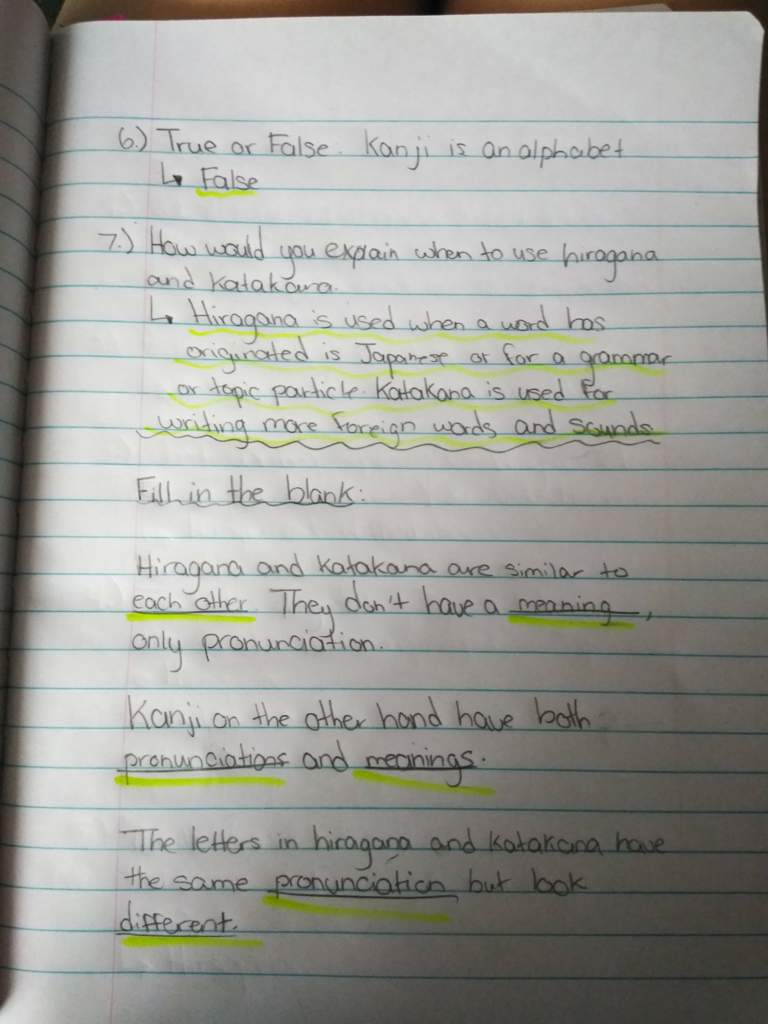 6.) True or False. Kanji is an alphabet
↳ False
7.) How would you explain when to use hiragana
and Katakana.
↳ Hiragana is used when a word has
originated is Japanese or for a grammar
or topic particle. Katakana is used for
writing more foreign words and sounds
Fill in the blank:
Hiragana and Katakana are similar to
each other. They don't have a meaning,
only pronunciation.
Kanji on the other hand have both
pronunciations and meanings.
The letters in hiragana and Katakana have
the same pronunciation but look
different.